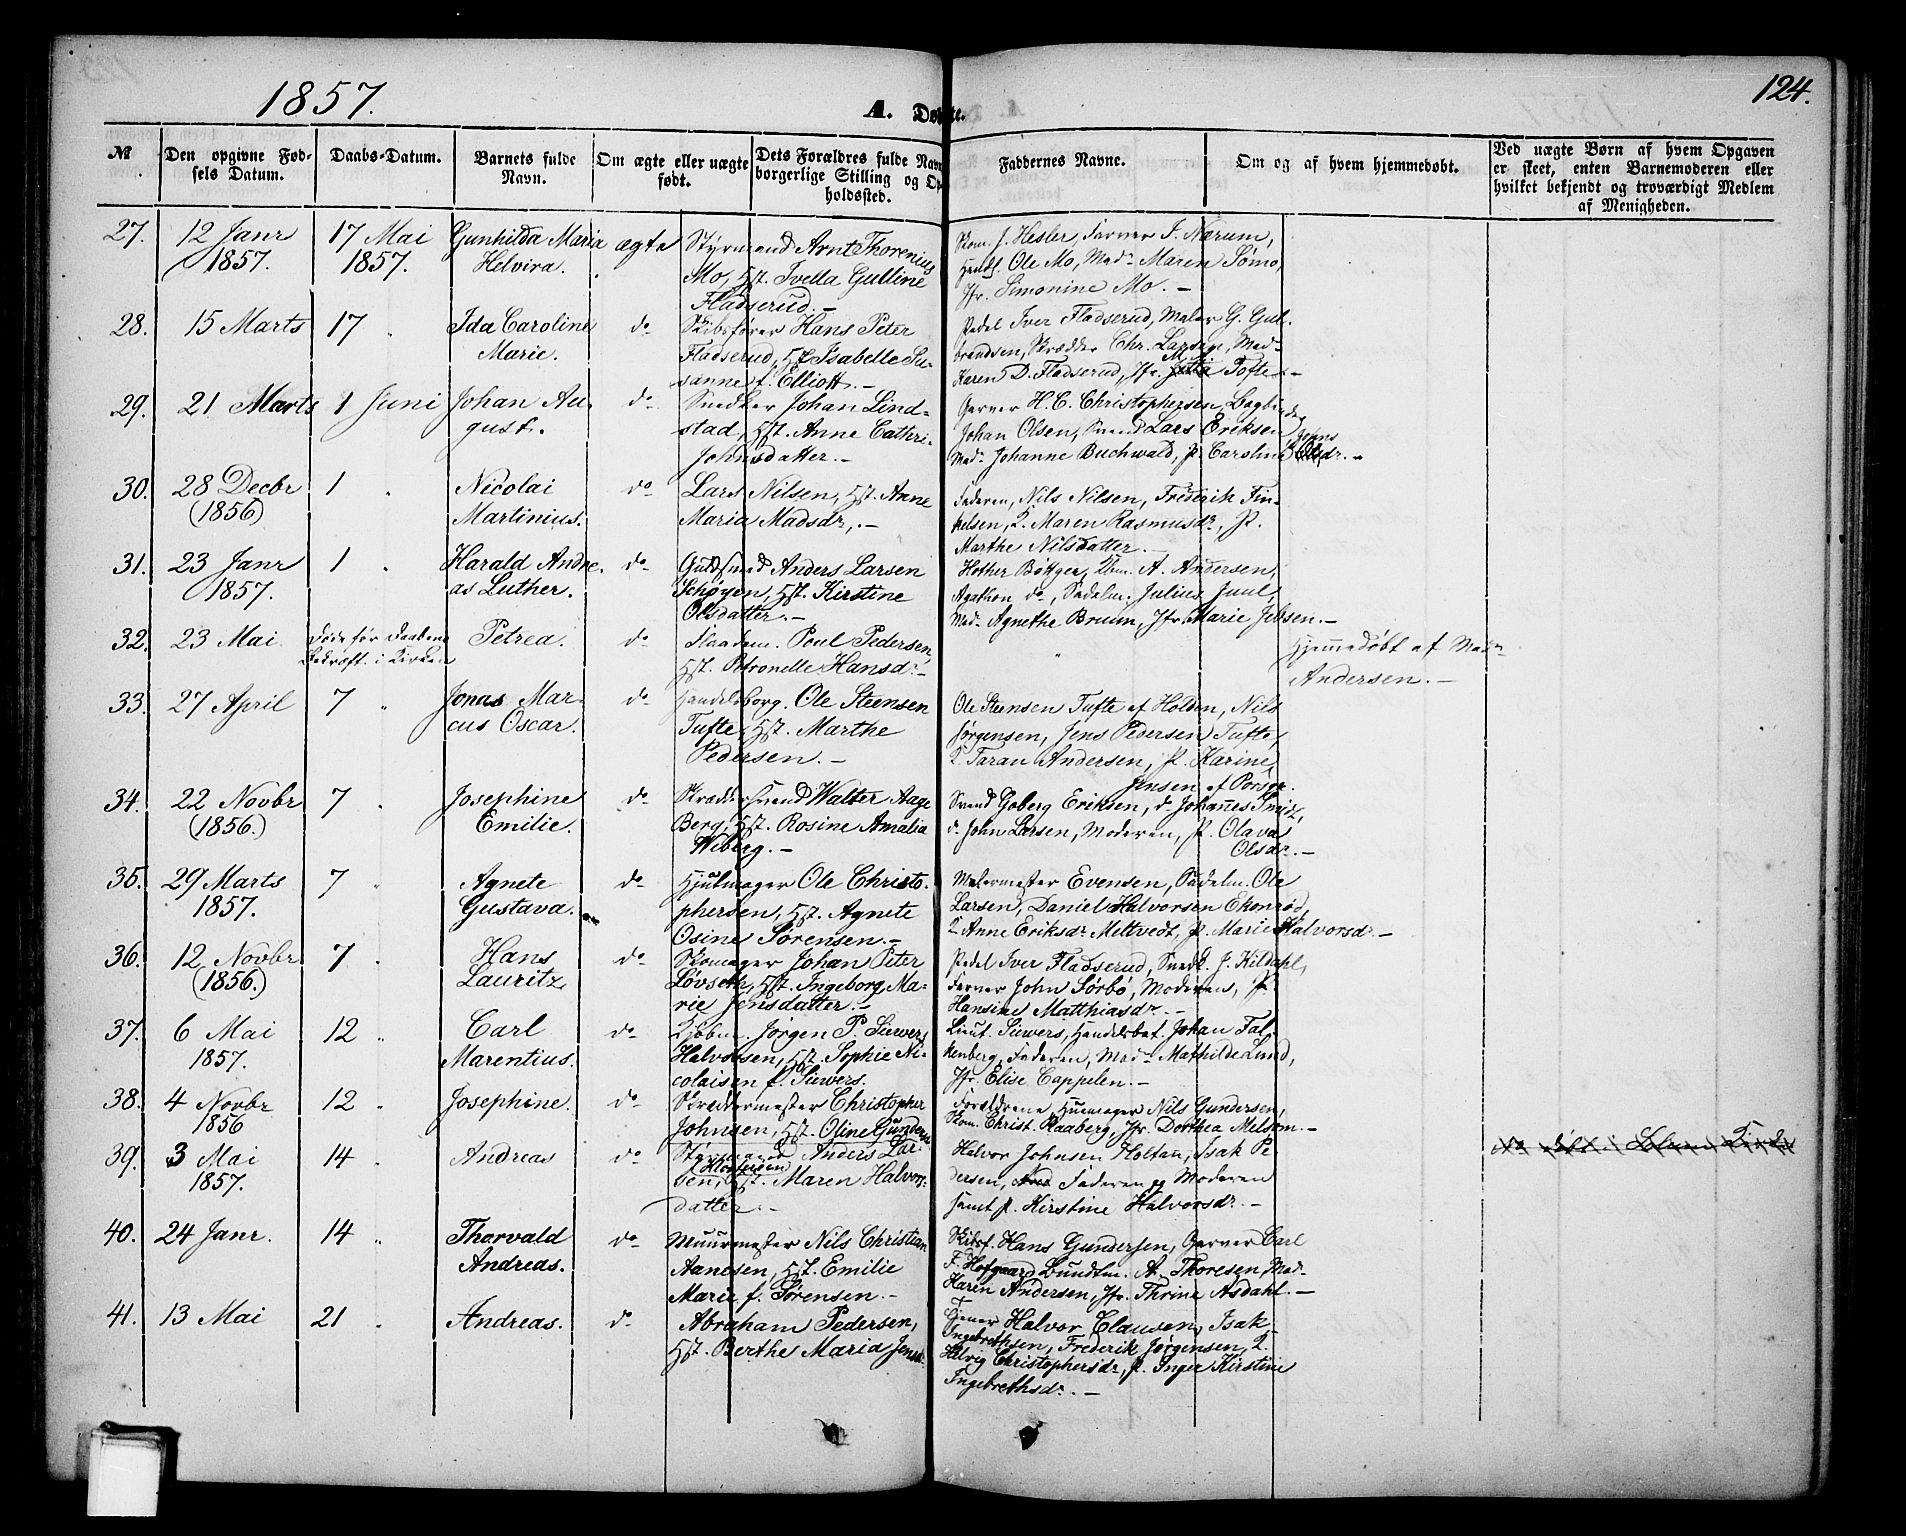 1857.
A. Døbte.
124.
№
Den opgivne Fød-
sels Datum.
Daabs-Datum.
Barnets fulde
Navn.
Om ægte eller uægte
født.
Dets Forældres fulde Navn
borgerlige Stilling og Op-
holdssted.
Faddernes Navne.
Om og af hvem hjemmedøbt.
Ved uægte Børn af hvem Opgaven
er skeet, enten Barnemoderen eller
hvilket bekjendt og troværdigt Medlem
af Menigheden.
27. 12 Janr 17 Mai Gunhilda Maria ægte Styrmand Arnt Thorenius
1857. 1857. Helvira. Mo, Hst. Ivella Gulline
Fladserud.-
Skom. J. Hesler, Farver F. Nærum,
Handl. Ole Mo, Mad. Maren Sømo,
Jfr. Simonine Mo.-
28. 15 Marts 17 " Ida Caroline do Skibsfører Hans Peter
Marie. Fladserud, Hst. Isabelle Su-
sanne f. Elliott.-
Pedel Iver Fladserud, Maler G. Gul-
brandsen, Skrædder Chr. Larsen, Mad.
Karen D. Fladserud, Jfr. Tofte.-
29. 21 Marts 1 Juni Johan Au- do Snedker Johan Lind-
gust. stad, Hst. Anne Cathri-
Johnsdatter.-
Garver H. C. Christophersen, Bogbinder
Johan Olsen, Svend Lars Eriksen
Mad. Johanne Buchwald, p. Caroline Johnsdr.-
30. 28 Decbr 1 " Nicolai do Lars Nilsen, Hst. Anne
(1856) Martinius. Maria Madsdr.-
Faderen, Nils Nilsen, Frederik Fin-
kelsen, K. Maren Rasmusdr, p.
Marthe Nilsdatter.-
31. 23 Janr 1 " Harald Andre- do Guldsmed Anders Larsen
1857. as Luther. Schøyen, Hst. Kirstine
Olsdatter.-
Hother Bøttger, A. Andersen,
Agathon do, Sadelm. Julius Juul,
Mad. Agnethe Bruun, Jfr. Marie Jebsen.-
32. 23 Mai Døde før Daabens Petrea. do Poul Pedersen,
Bekræft. i Kirken Hst. Petronelle Hansdr.-
"
Hjemmedøbt af Mad.
Andersen.-
33. 27 April 7 " Jonas Mar- do Handelsborg. Ole Steensen
cus Oscar. Tufte, Hst. Marthe
Pedersen.-
Ole Steensen Tufte af Holden, Nils
Jørgensen, Jens Pedersen Tufte,
K. Taran Andersen, p. Karine
Jensen af Porsgr.
34. 22 Novbr 7 " Josephine do Skræddersvend Walter Aage
(1856.) Emilie. Berg, Hst. Rosine Amalia
Wiberg.-
Svend Goberg Eriksen, do Johannes Smitz,
do John Larsen, Moderen, p. Olava
Olsdr.-
35. 29 Marts 7 " Agnete do Hjulmager Ole Christo-
1857. Gustava. phersen, Hst. Agnete
Osine Sørensen.-
Malermester Evensen, Sadelm. Ole
Larsen, Daniel Halvorsen Ekonrød,
K. Anne Eriksdr. Meltvedt, p. Marie Halvorsdr.-
36. 12 Novbr 7 " Hans do Skomager Johan Peter
(1856.) Lauritz. Løvseth, Hst. Ingeborg Ma-
rie Jensdatter.-
Pedel Iver Fladserud, Snedk. J. Kildahl,
Farver John Sørbø, Moderen, p.
Hansine Matthiasdr.-
37. 6 Mai 12 " Carl do Kjøbm. Jørgen P. Siewers
1857. Marentius. Halvorsen, Hst. Sophie Ni-
colaisen f. Siewers.
Lieut. Siewers, Handelsbet. Johan Fal-
kenberg, Faderen, Mad. Mathilde Lund,
Jfr. Elise Cappelen.-
38. 4 Novbr 12 " Josephine. do Skræddermester Christopher
1856 Johnsen, Hst. Oline Gunders
Forældrene, Huemager Nils Gundersen,
Skom. Christ. Raaberg, Jfr. Dorthea Melsom.-
39. 3 Mai 14 " Andreas do Styrmand Anders Lar-
1857. sen, Hst. Maren Halvors-
datter.-
Halvor Johnsen Holtan, Isak Pe-
dersen, Faderen og Moderen
samt p. Kirstine Halvorsdr.-
40. 24 Janr. 14 " Thorvald do Muurmester Nils Christian
Andreas. Aanesen, Hst. Emilie
Marie f. Sørensen.-
Skibsf. Hans Gundersen, Garver Carl
F. Hofgaard, Bundtm. A. Thoresen, Mad.
Karen Andersen, Jfr. Thrine Asdahl.-
41. 13 Mai 21 " Andreas. do Abraham Pedersen,
Hst. Berthe Maria Jensdr.
Tjener Halvor Clausen, Isak
Ingebrethsen, Frederik Jørgensen, K.
Helvig Christophersdr, p. Inger Kirstine
Ingebrethsdr.-